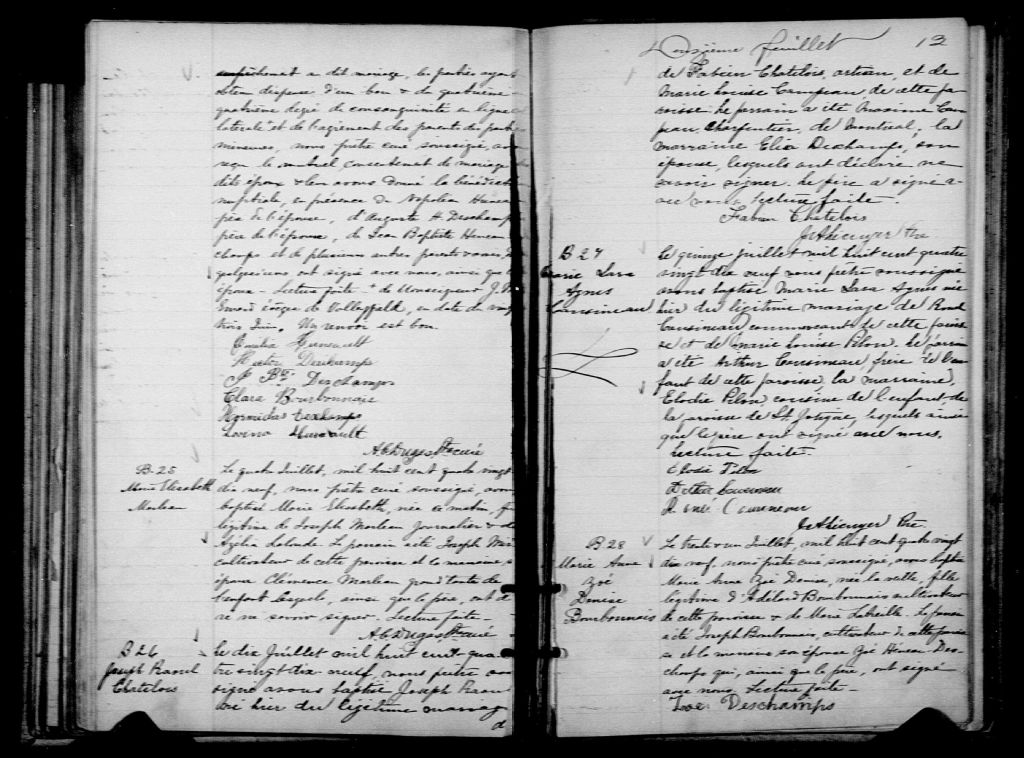 empêchement a dit mariage, les parties ayant
obtenu dispense d'un bon & de quatrième
quatrième degré de consanguinité en ligne
latérale et de l'agrément des parents des parties
mineures, nous prêtre curé soussigné, avons
reçu le mutuel consentement de mariage
dits époux & leur avons donné la bénédiction
nuptiale, en présence de Napoléon
père de l'épouse, d'Auguste H. Deschamps
père de l'époux, de Jean Baptiste
champs et de plusieurs autres parents &
quelques uns ont signé avec nous, ainsi que
époux - Lecture faite - de Monseigneur J.
évêque de Valleyfield, en date du vingt
trois Juin. Un renvoi est bon.
Hector Deschamps
J Bte Deschamps
Clara Bourbonnais
Deschamps
Huneault
A.C. Dugas Ptre curé
B-25
Marie Elisabeth
Morleau
Le quatre Juillet, mil huit cent quatre vingt
dix neuf, nous prêtre curé soussigné, avons
baptisé Marie Elisabeth, née ce matin, fille
légitime de Joseph Morleau Journalier & de
Azélia Lalonde. Le parrain a été Joseph
cultivateur de cette paroisse et la marraine, son
épouse Clémence Morleau grand'tante de
l'enfant lesquels, ainsi que le père, ont
ré ne savoir signer. Lecture faite -
A.C. Dugas Ptre curé
B26
Joseph Raoul
Chatelois
Le dix Juillet mil huit cent qua
tre vingt dix neuf, nous prêtre sous
signé avons baptisé Joseph Raoul
né hier du légitime mariage
d
Douzième feuillet 12
de Fabien Chatelois, artisan, et de
Marie Louise Campeau, de cette pa
roisse. Le parrain a été Maxime Cam
peau, Charpentier, de Montréal; la
marraine Eliza Deschamps, son
épouse, lesquels ont déclaré ne
savoir signer. Le père a signé a-
vec nous. Lecture faite.
Fabien Chatelois
Ptre
B 27
Marie Lara
Agnes
Cousineau
Le quinze juillet mil huit cent quatre
vingt dix neuf nous prêtre soussigné
avons baptisé Marie Lara Agnes née
hier du légitime mariage de René
Cousineau commerçant de cette parois
se et de Marie Louise Pilon. Le parrain
a été Arthur Cousineau, frère de l'en
fant de cette paroisse, la marraine,
Elodie Pilon cousine de l'enfant de
la paroisse de St. Joseph, lesquels ainsi
que le père ont signé avec nous.
Lecture faite.
Elodie Pilon
Arthur Cousineau
René Cousineau
Ptre
B 28
Marie Anne
Zoé
Denise
Bourbonnais
Le trente & un Juillet, mil huit cent quatre vingt
dix neuf, nous prêtre curé soussigné, avons baptisé
Marie Anne Zoé Denise, née la veille, fille
légitime d'Adélard Bourbonnais cultivateur
de cette paroisse & de Marie Labreille. Le parrain
a été Joseph Bourbonnais, cultivateur de cette parois
se et la marraine son épouse Zoé Des-
champs qui, ainsi que le père, ont signé
avec nous. Lecture faite -
Zoé Deschamps